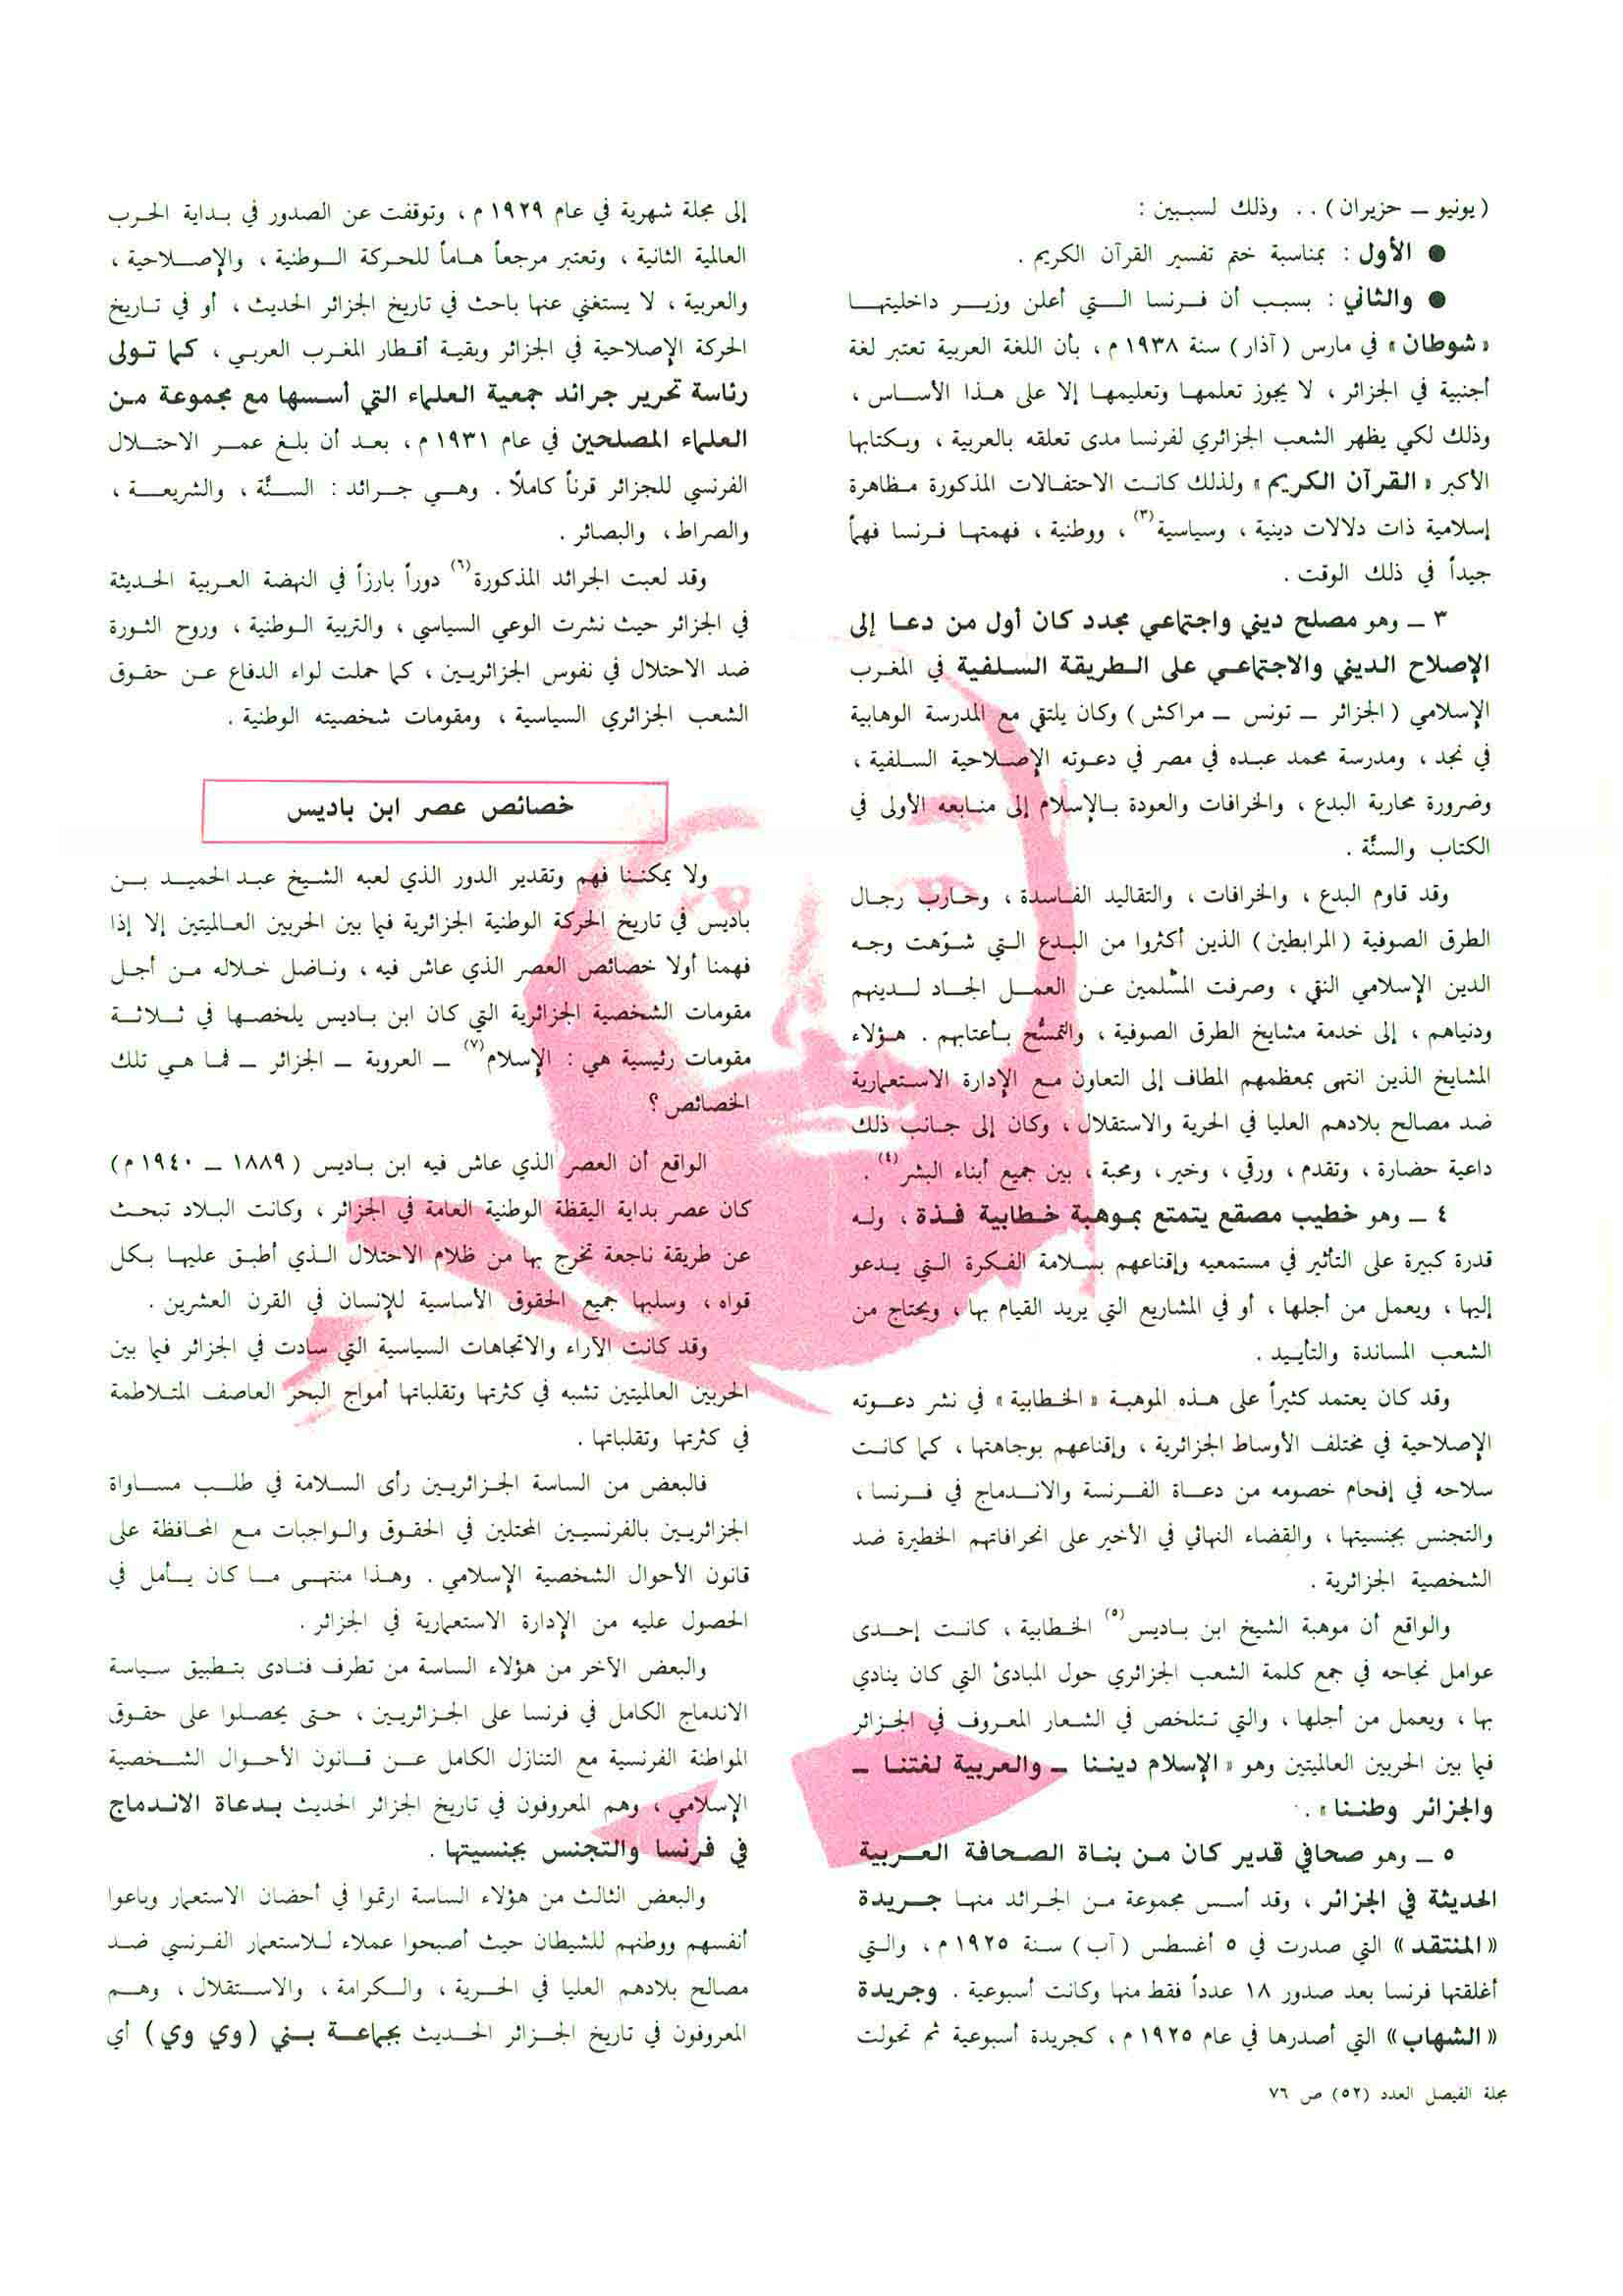 (يونيو ــ حزيران) .. وذلك لسببين :
● الأول : بمناسبة ختم تفسير القرآن الكريم .
● والثاني : بسبب أن فرنسا التي أعلن وزير داخليتها
« شوطان » في مارس (آذار) سنة ١٩٣٨ م ، بأن اللغة العربية تعتبر لغة
أجنبية في الجزائر ، لا يجوز تعلمها وتعليمها إلا على هذا الأساس ،
وذلك لكي يظهر الشعب الجزائري لفرنسا مدى تعلقه بالعربية ، وبكتابها
الأكبر « القرآن الكريم » ولذلك كانت الاحتفالات المذكورة مظاهرة
إسلامية ذات دلالات دينية ، وسياسية (٣) ، ووطنية ، فهمتها فرنسا فهماً
جيداً في ذلك الوقت .
٣ ــ وهو مصلح ديني واجتماعي مجدد كان أول من دعا إلى
الإصلاح الديني والاجتماعي على الطريقة السلفية في المغرب
الإسلامي (الجزائر ــ تونس ــ مراكش) وكان يلتقي مع المدرسة الوهابية
في نجد ، ومدرسة محمد عبده في مصر في دعوته الإصلاحية السلفية ،
وضرورة محاربة البدع ، والخرافات والعودة بالإسلام إلى منابعه الأولى في
الكتاب والسنّة .
وقد قاوم البدع ، والخرافات ، والتقاليد الفاسدة ، وحارب رجال
الطرق الصوفية (المرابطين) الذين أكثروا من البدع التي شوّهت وجه
الدين الإسلامي النقي ، وصرفت المسْلمين عن العمل الجاد لدينهم
ودنياهم ، إلى خدمة مشايخ الطرق الصوفية ، والتمسُّح بأعتابهم . هؤلاء
المشايخ الذين انتهى بمعظمهم المطاف إلى التعاون مع الإدارة الاستعمارية
ضد مصالح بلادهم العليا في الحرية والاستقلال ، وكان إلى جانب ذلك
داعية حضارة ، وتقدم ، ورقي ، وخير ، ومحبة ، بين جميع أبناء البشر (٤) .
٤ ــ وهو خطيب مصقع يتمتع بموهبة خطابية فذة ، وله
قدرة كبيرة على التأثير في مستمعيه وإقناعهم بسلامة الفكرة التي يدعو
إليها ، ويعمل من أجلها ، أو في المشاريع التي يريد القيام بها ، ويحتاج من
الشعب المساندة والتأييد .
وقد كان يعتمد كثيراً على هذه الموهبة « الخطابية » في نشر دعوته
الإصلاحية في مختلف الأوساط الجزائرية ، وإقناعهم بوجاهتها ، كما كانت
سلاحه في إفحام خصومه من دعاة الفرنسة والاندماج في فرنسا ،
والتجنس بجنسيتها ، والقضاء النهائي في الأخير على انحرافاتهم الخطيرة ضد
الشخصية الجزائرية .
والواقع أن موهبة الشيخ ابن باديس (٥) الخطابية ، كانت إحدى
عوامل نجاحه في جمع كلمة الشعب الجزائري حول المبادئ التي كان ينادي
بها ، ويعمل من أجلها ، والتي تتلخص في الشعار المعروف في الجزائر
فيما بين الحربين العالميتين وهو « الإسلام ديننا ــ والعربية لغتنا ــ
والجزائر وطننا » .
٥ ــ وهو صحافي قدير كان من بناة الصحافة العربية
الحديثة في الجزائر ، وقد أسس مجموعة من الجرائد منها جريدة
«المنتقد» التي صدرت في ٥ أغسطس (آب) سنة ١٩٢٥ م ، والتي
أغلقتها فرنسا بعد صدور ١٨ عدداً فقط منها وكانت أسبوعية . وجريدة
«الشهاب» التي أصدرها في عام ١٩٢٥ م ، كجريدة أسبوعية ثم تحولت
إلى مجلة شهرية في عام ١٩٢٩ م ، وتوقفت عن الصدور في بداية الحرب
العالمية الثانية ، وتعتبر مرجعاً هاماً للحركة الوطنية ، والإصلاحية ،
والعربية ، لا يستغني عنها باحث في تاريخ الجزائر الحديث ، أو في تاريخ
الحركة الإصلاحية في الجزائر وبقية أقطار المغرب العربي ، كما تولى
رئاسة تحرير جرائد جمعية العلماء التي أسسها مع مجموعة من
العلماء المصلحين في عام ١٩٣١ م ، بعد أن بلغ عمر الاحتلال
الفرنسي للجزائر قرناً كاملاً . وهي جرائد : السنّة ، والشريعة ،
والصراط ، والبصائر .
وقد لعبت الجرائد المذكورة (٦) دوراً بارزاً في النهضة العربية الحديثة
في الجزائر حيث نشرت الوعي السياسي ، والتربية الوطنية ، وروح الثورة
ضد الاحتلال في نفوس الجزائريين ، كما حملت لواء الدفاع عن حقوق
الشعب الجزائري السياسية ، ومقومات شخصيته الوطنية .
خصائص عصر ابن باديس
ولا يمكننا فهم وتقدير الدور الذي لعبه الشيخ عبد الحميد بن
باديس في تاريخ الحركة الوطنية الجزائرية فيما بين الحربين العالميتين إلا إذا
فهمنا أولا خصائص العصر الذي عاش فيه ، وناضل خلاله من أجل
مقومات الشخصية الجزائرية التي كان ابن باديس يلخصها في ثلاثة
مقومات رئيسية هي : الإسلام (٧) ــ العروبة ــ الجزائر ــ فما هي تلك
الخصائص ؟
الواقع أن العصر الذي عاش فيه ابن باديس (١٨٨٩ ــ ١٩٤٠ م)
كان عصر بداية اليقظة الوطنية العامة في الجزائر ، وكانت البلاد تبحث
عن طريقة ناجعة تخرج بها من ظلام الاحتلال الذي أطبق عليها بكل
قواه ، وسلبها جميع الحقوق الأساسية للإنسان في القرن العشرين .
وقد كانت الآراء والاتجاهات السياسية التي سادت في الجزائر فيما بين
الحربين العالميتين تشبه في كثرتها وتقلباتها أمواج البحر العاصف المتلاطمة
في كثرتها وتقلباتها .
فالبعض من الساسة الجزائريين رأى السلامة في طلب مساواة
الجزائريين بالفرنسيين المحتلين في الحقوق والواجبات مع المحافظة على
قانون الأحوال الشخصية الإسلامي . وهذا منتهى ما كان يأمل في
الحصول عليه من الإدارة الاستعمارية في الجزائر .
والبعض الآخر من هؤلاء الساسة من تطرف فنادى بتطبيق سياسة
الاندماج الكامل في فرنسا على الجزائريين ، حتى يحصلوا على حقوق
المواطنة الفرنسية مع التنازل الكامل عن قانون الأحوال الشخصية
الإسلامي ، وهم المعروفون في تاريخ الجزائر الحديث بدعاة الاندماج
في فرنسا والتجنس بجنسيتها .
والبعض الثالث من هؤلاء الساسة ارتموا في أحضان الاستعمار وباعوا
أنفسهم ووطنهم للشيطان حيث أصبحوا عملاء للاستعمار الفرنسي ضد
مصالح بلادهم العليا في الحرية ، والكرامة ، والاستقلال ، وهم
المعروفون في تاريخ الجزائر الحديث بجماعة بني (وي وي) أي
مجلة الفيصل العدد (٥٢) ص ٧٦